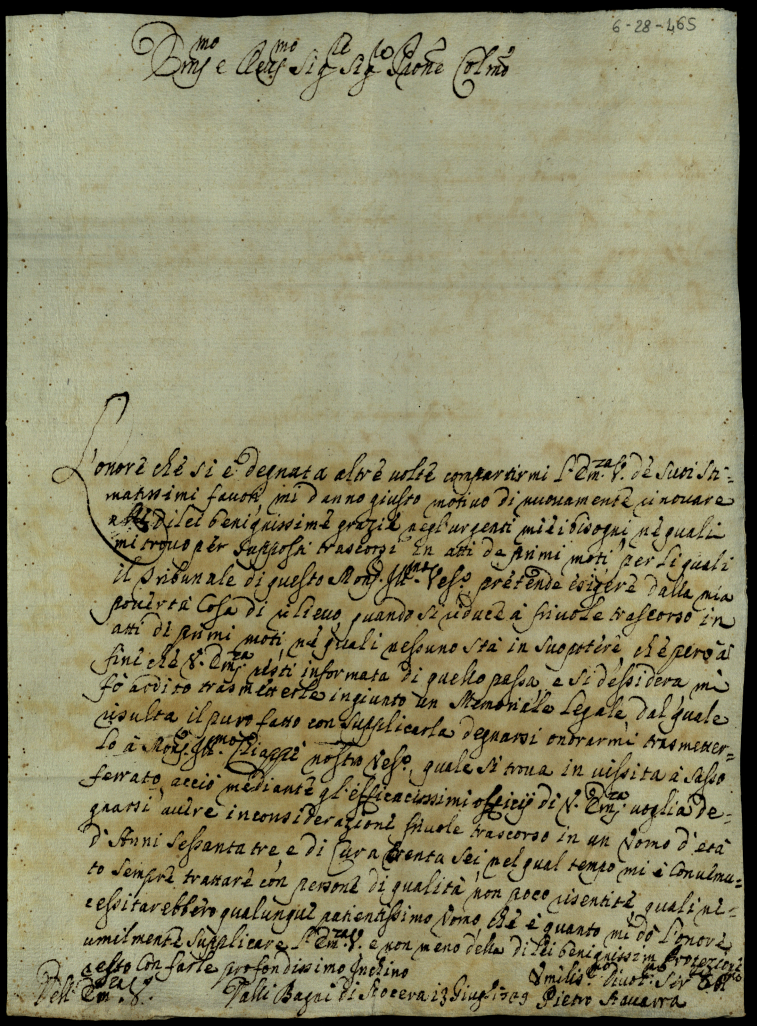 6-28-465
Em.mo e Rev.mo Sig.re Sig.re P'rone Col.mo
L'onore che si è degnata altre volte compartirmi l'Em.za V. de suoi sti=
matissimi favori, mi danno giusto motivo di nuovamente rinovare
di lei benignissime grazie negl'urgenti miei bisogni ne quali
mi trovo per supposti trascorsi in atti de primi moti, per li quali
il Tribunale di questo Mons. Ill.mo Vesc.o pretende esigere dalla mia
povertà cosa di rilievo, quando si riduce à frivole trascorso in
atti di primi moti, ne quali nessuno stà in suo potere, che però à
fine che V. Em.za resti informata di quello passa, e si dessidera mi
fò ardito trasmetterle ingiunto un Memoriale legale, dal quale
risulta il puro fatto con supplicarla degnarsi onorarmi trasmetter=
lo à Mons. Ill.mo nostro Vesc.o, quale si trova in vissita à Sasso
ferrato, acciò mediante gl'efficacissimi officij di V. Em.za voglia de=
gnarsi avere inconsiderazione frivole trascorso in un Uomo d'età
d'Anni sessanta tre, e di Cura trenta sei, nel qual tempo mi è convenu=
to sempre trattare con persone di qualità non poco risentite quali ne=
cessitarebbero qualunque patientissimo Uomo, che è quanto mi dò l'onore
umilmente supplicare l'Em.za V. e non meno della di lei benignissima Protezione
resto con farle profondissimo Inchino
Dell'Em.za V.
Valli Bagni di Nocera 13 Giug. 1729
Umilis.mo Divot.mo Ser.
Pietro Navarra